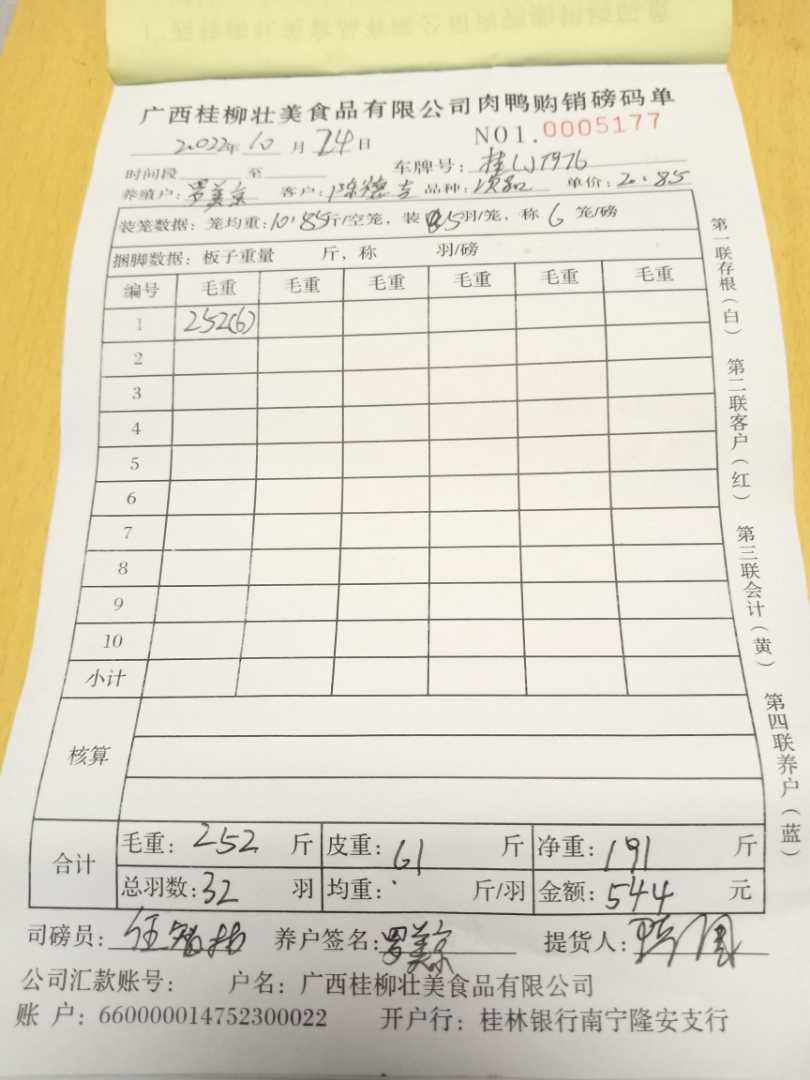 广西桂柳壮美食品有限公司肉鸭购销磅码单
2022年10月24日 NO1.0005177
时间段 至 车牌号：桂
养殖户：罗美京 客户：陈德 品种： 单价：2.85
装笼数据：笼均重：10.85斤/空笼，装 5羽/笼，称 6 笼/磅
捆脚数据：板子重量 斤，称 羽/磅
编号 毛重 毛重 毛重 毛重 毛重 毛重
1 252(6)
2
3
4
5
6
7
8
9
10
小计
核算
合计 毛重：252 斤 皮重：61 斤 净重：191 斤
总羽数：32 羽 均重： 斤/羽 金额：544 元
司磅员：任 养户签名：罗美京 提货人：
公司汇款账号： 户名：广西桂柳壮美食品有限公司
账 户：660000014752300022 开户行：桂林银行南宁隆安支行
第一联存根（白） 第二联客户（红） 第三联会计（黄） 第四联养户（蓝）